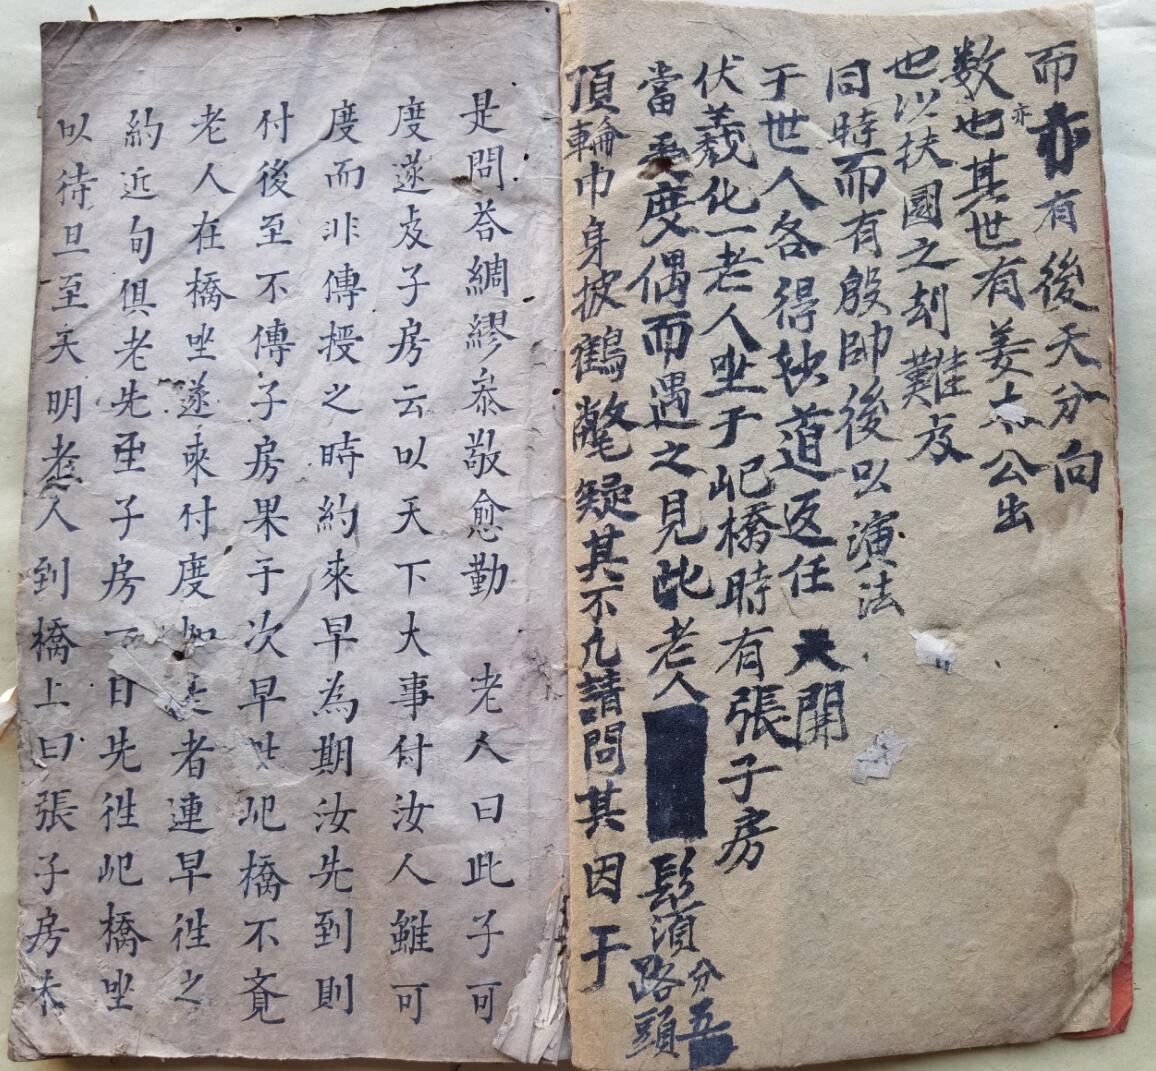 而亦有後天分向
数也亦其世有姜太公出
也以扶國之刦難友
同時而有殷帥後以演法
于世人各得妙道返任天開
伏羲化一老人坐于圯橋時有張子房
當度偶而遇之見此老人髭須分五
路頭
頂輪巾身披鶴氅疑其不凢請問其因于
是問答綢繆恭敬愈勤 老人曰此子可
度遂友子房云以天下大事付汝人雖可
度而非傳授之時約來早為期汝先到則
付後至不傳子房果于次早 圯橋不竟
老人在橋坐遂來付度如是者連早徃之
約近旬俱老先至子房一日先徃圯橋坐
以待旦至天明老人到橋上曰張子房未